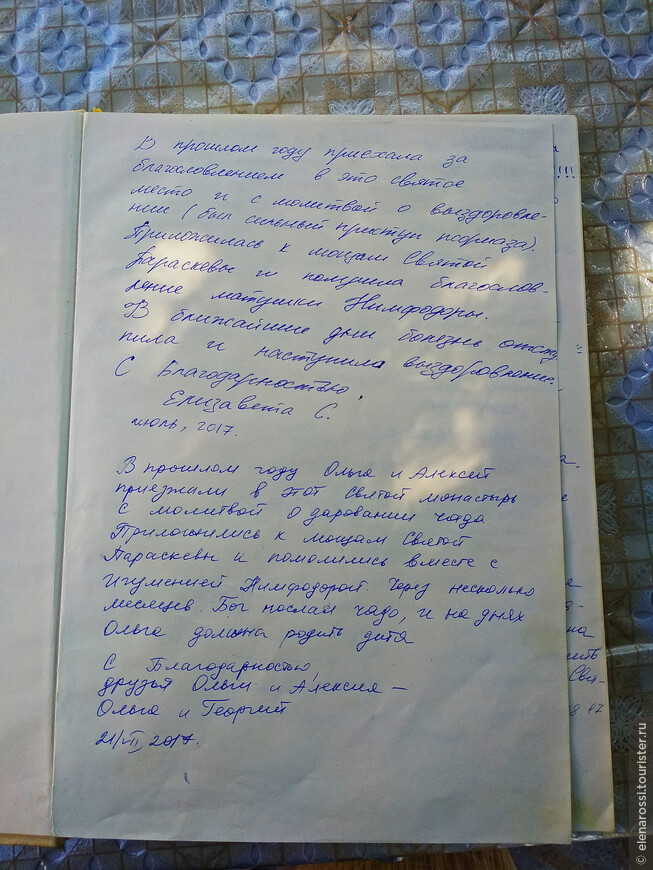 В прошлом году приехала за
благословлением в это святое
место и с молитвой о выздоровле-
нии (был сильный приступ псориаза).
Приложилась к мощам Святой
Параскевы и получила благослов-
ление матушки Нимфодоры.
В ближайшие дни болезнь отсту-
пила и наступило выздоровление.
С Благодарностью,
Елизавета С.
июль, 2017.
В прошлом году Ольга и Алексей
приезжали в этот Святой монастырь
с молитвой о даровании чада
Приложились к мощам Святой
Параскевы и помолились вместе с
Игуменией Нимфодорой. Через несколько
месяцев Бог послал чадо, и на днях
Ольга должна родить дитя
С Благодарностью,
друзья Ольги и Алексия –
Ольга и Георгий
21/VII, 2017.
!!!
на
Свя-
© elenarossi.tourister.ru